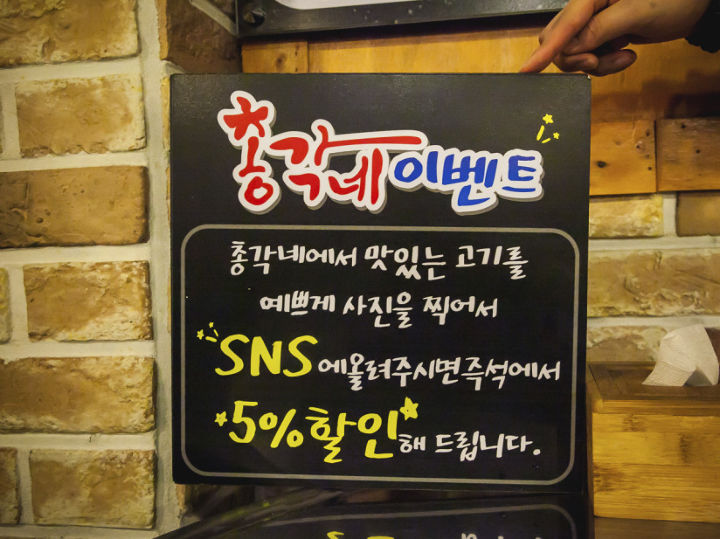 총각네 이벤트
총각네에서 맛있는 고기를
예쁘게 사진을 찍어서
SNS에올려주시면즉석에서
5%할인해 드립니다.